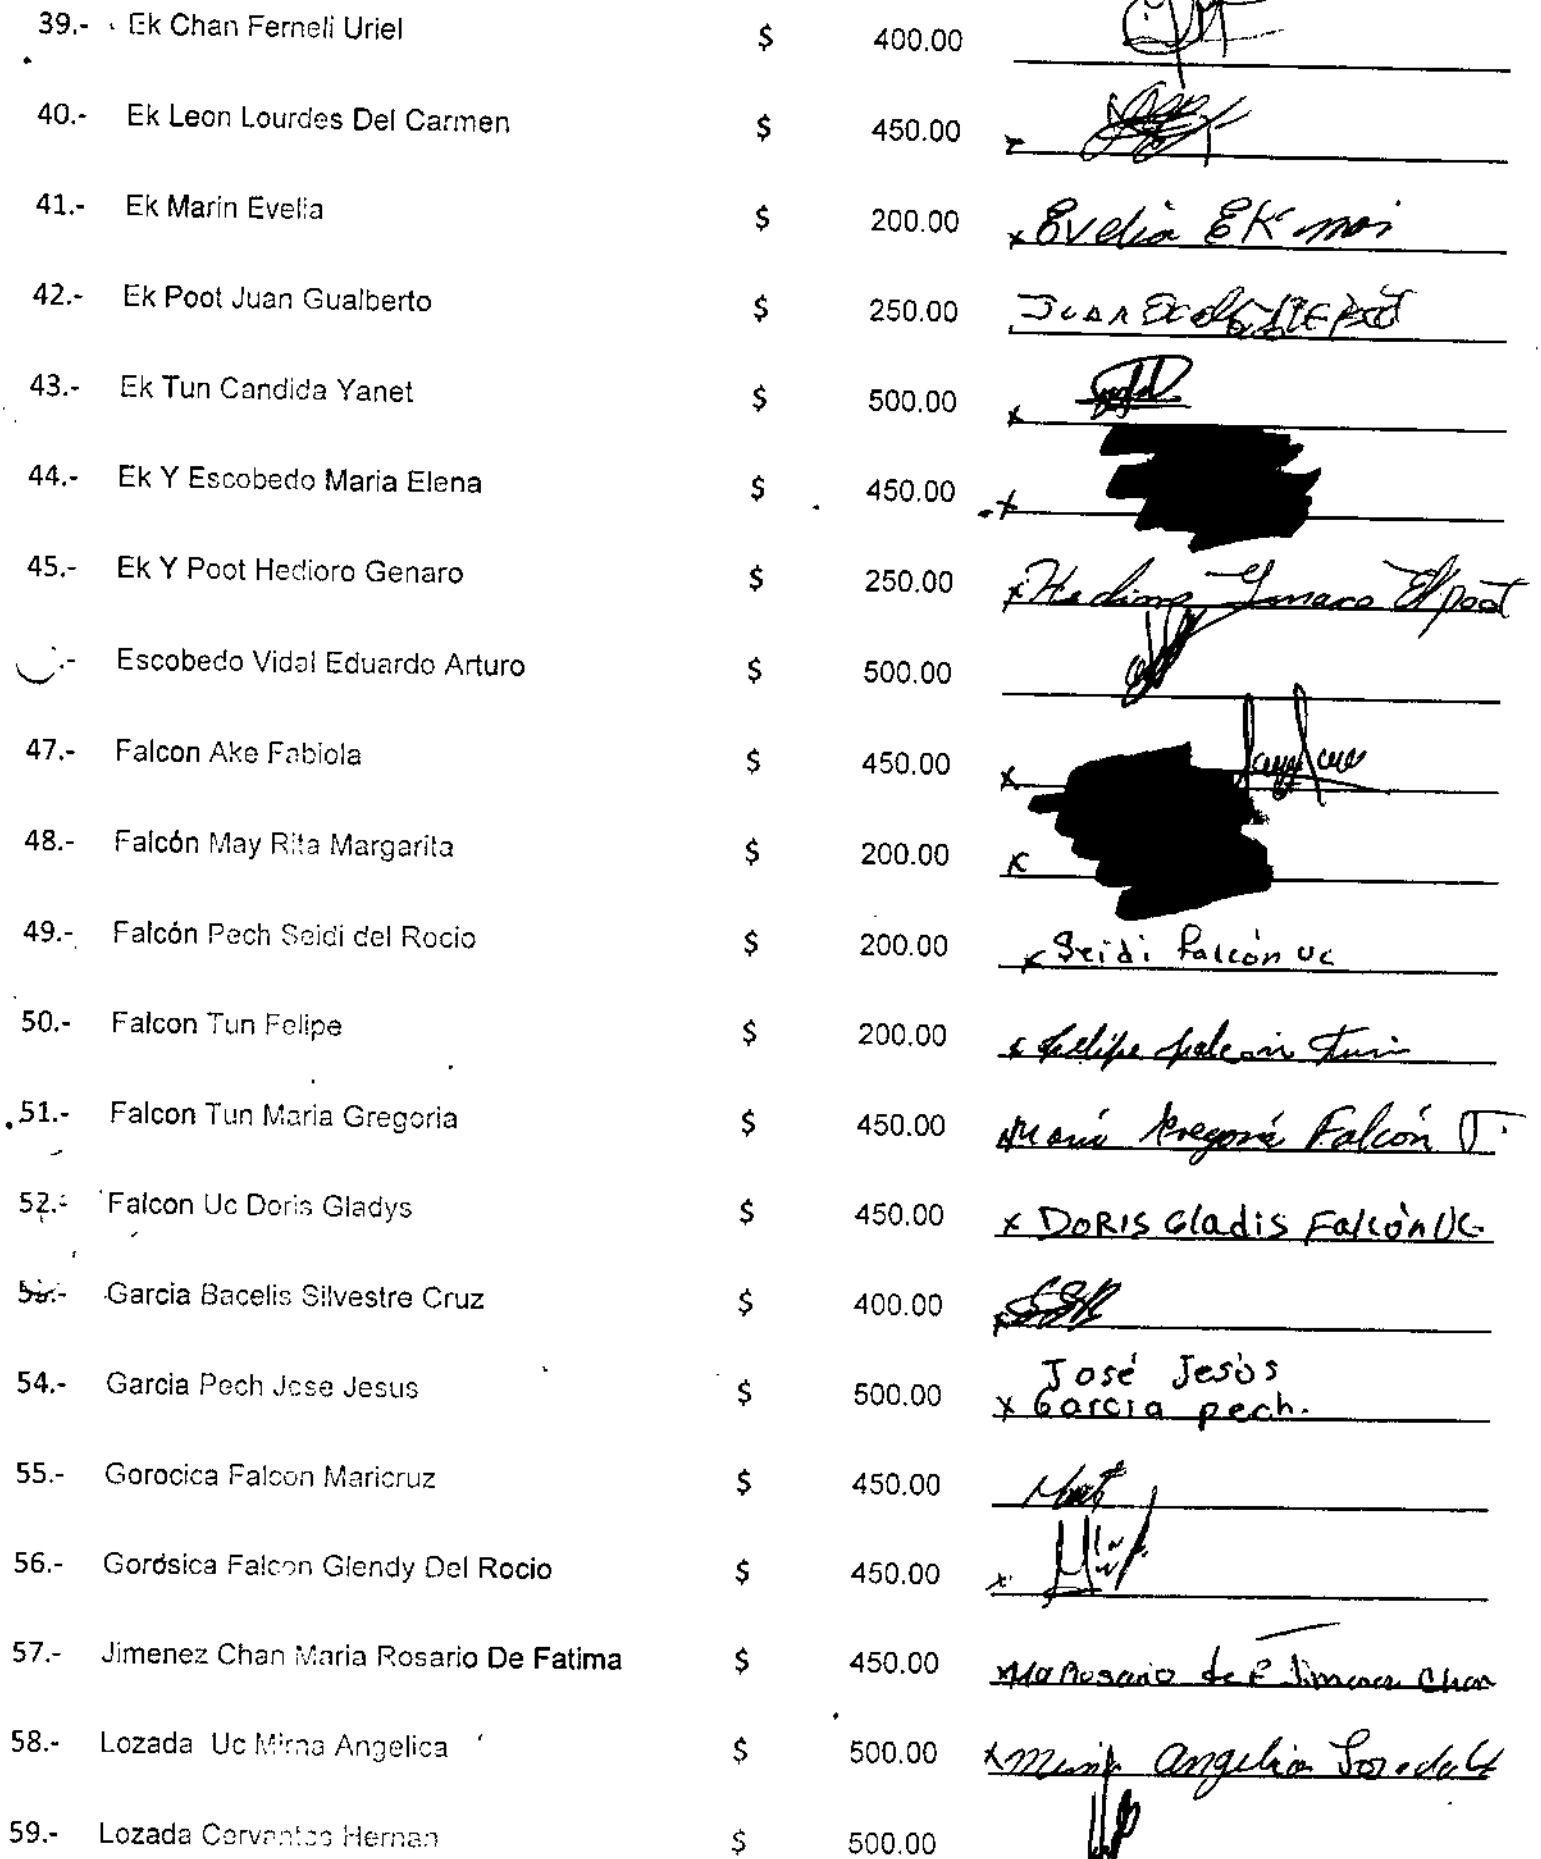 39.- Ek Chan Ferneli Uriel $ 400.00
40.- Ek Leon Lourdes Del Carmen $ 450.00 x
41.- Ek Marin Evelia $ 200.00 x Evelia EK
42.- Ek Poot Juan Gualberto $ 250.00 Juan
43.- Ek Tun Candida Yanet $ 500.00 x
44.- Ek Y Escobedo Maria Elena $ 450.00 x
45.- Ek Y Poot Hedioro Genaro $ 250.00 x
.- Escobedo Vidal Eduardo Arturo $ 500.00
47.- Falcon Ake Fabiola $ 450.00 x
48.- Falcón May Rita Margarita $ 200.00 x
49.- Falcón Pech Seidi del Rocio $ 200.00 x Seidi Falcón Uc
50.- Falcon Tun Felipe $ 200.00 x Felipe falcon tun
51.- Falcon Tun Maria Gregoria $ 450.00 María Gregoria Falcón T.
52.- Falcon Uc Doris Gladys $ 450.00 x DORIS Gladis Falcón UC
Garcia Bacelis Silvestre Cruz $ 400.00 x
54.- Garcia Pech Jose Jesus $ 500.00 José Jesús
x Garcia pech.
55.- Gorocica Falcon Maricruz $ 450.00
56.- Gorósica Falcon Glendy Del Rocio $ 450.00 x
57.- Jimenez Chan Maria Rosario De Fatima $ 450.00 x Ma Rosario de F Jimenez Chan
58.- Lozada Uc Mirna Angelica $ 500.00 x Mirna Angelica
59.- Lozada Cervantes Hernan $ 500.00